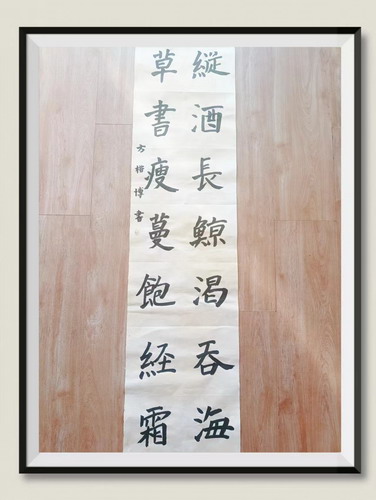 縱酒長鯨渴吞海
草書瘦蔓飽經霜
方楷博書